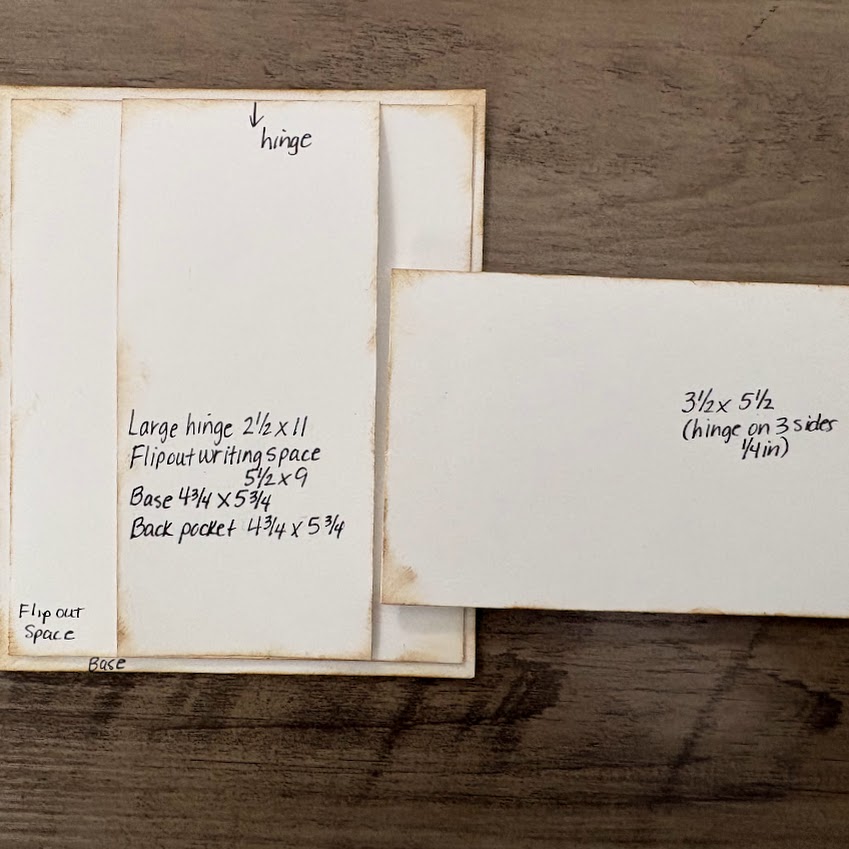 hinge
Large hinge 2½ x 11
Flip out writing space
5½ x 9
Base 4¾ x 5¾
Back pocket 4¾ x 5¾
Flip out
Space
Base
3½ x 5½
(hinge on 3 sides
¼ in)